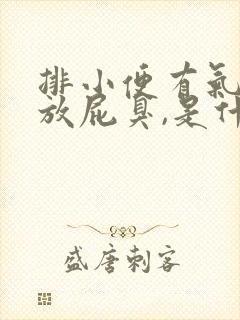 排小便有氣
放屁臭,是什
盛唐刺客